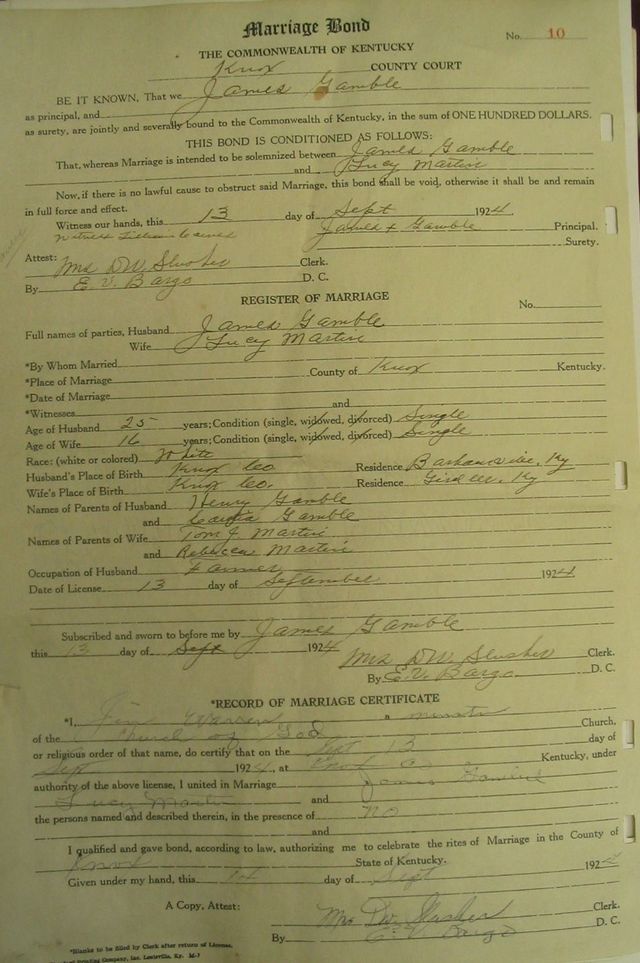 Marriage Bond
No. 10
THE COMMONWEALTH OF KENTUCKY
Knox COUNTY COURT
BE IT KNOWN, That we James Gamble
as principal, and
as surety, are jointly and severally bound to the Commonwealth of Kentucky, in the sum of ONE HUNDRED DOLLARS.
THIS BOND IS CONDITIONED AS FOLLOWS:
That, whereas Marriage is intended to be solemnized between James Gamble
and Lucy Martin
Now, if there is no lawful cause to obstruct said Marriage, this bond shall be void, otherwise it shall be and remain
in full force and effect.
Witness our hands, this 13 day of Sept 1924.
Witness James x Gamble Principal.
Surety.
Attest: Mrs DW Slusher Clerk.
By E. V. Bargo D. C.
REGISTER OF MARRIAGE
No.
Full names of parties, Husband James Gamble
Wife Lucy Martin
*By Whom Married
*Place of Marriage County of Knox Kentucky.
*Date of Marriage
*Witnesses and
Age of Husband 25 years; Condition (single, widowed, divorced) Single
Age of Wife 16 years; Condition (single, widowed, divorced) Single
Race: (white or colored) White
Husband's Place of Birth Knox Co Residence Barbourville, Ky
Wife's Place of Birth Knox Co. Residence Girdler, Ky
Names of Parents of Husband Henry Gamble
and Gamble
Names of Parents of Wife Tom J. Martin
and Rebecca Martin
Occupation of Husband Farmer
Date of License 13 day of September 1924
Subscribed and sworn to before me by James Gamble
this 13 day of Sept 1924
Mrs DW Slusher Clerk.
By E. V. Bargo D. C.
*RECORD OF MARRIAGE CERTIFICATE
*I, Jim Warren a minister
of the Church of God Church.
or religious order of that name, do certify that on the Sept 13 day of
Sept 1924, at Knox Co Kentucky, under
authority of the above license, I united in Marriage James Gamble
Lucy Martin and
the persons named and described therein, in the presence of no
and
I qualified and gave bond, according to law, authorizing me to celebrate the rites of Marriage in the County of
Knox State of Kentucky.
Given under my hand, this day of Sept 1924
A Copy, Attest: Mrs DW Slusher Clerk.
By E. V. Bargo D. C.
*Blanks to be filled by Clerk after return of License.
Printing Company, Inc. Louisville, Ky.